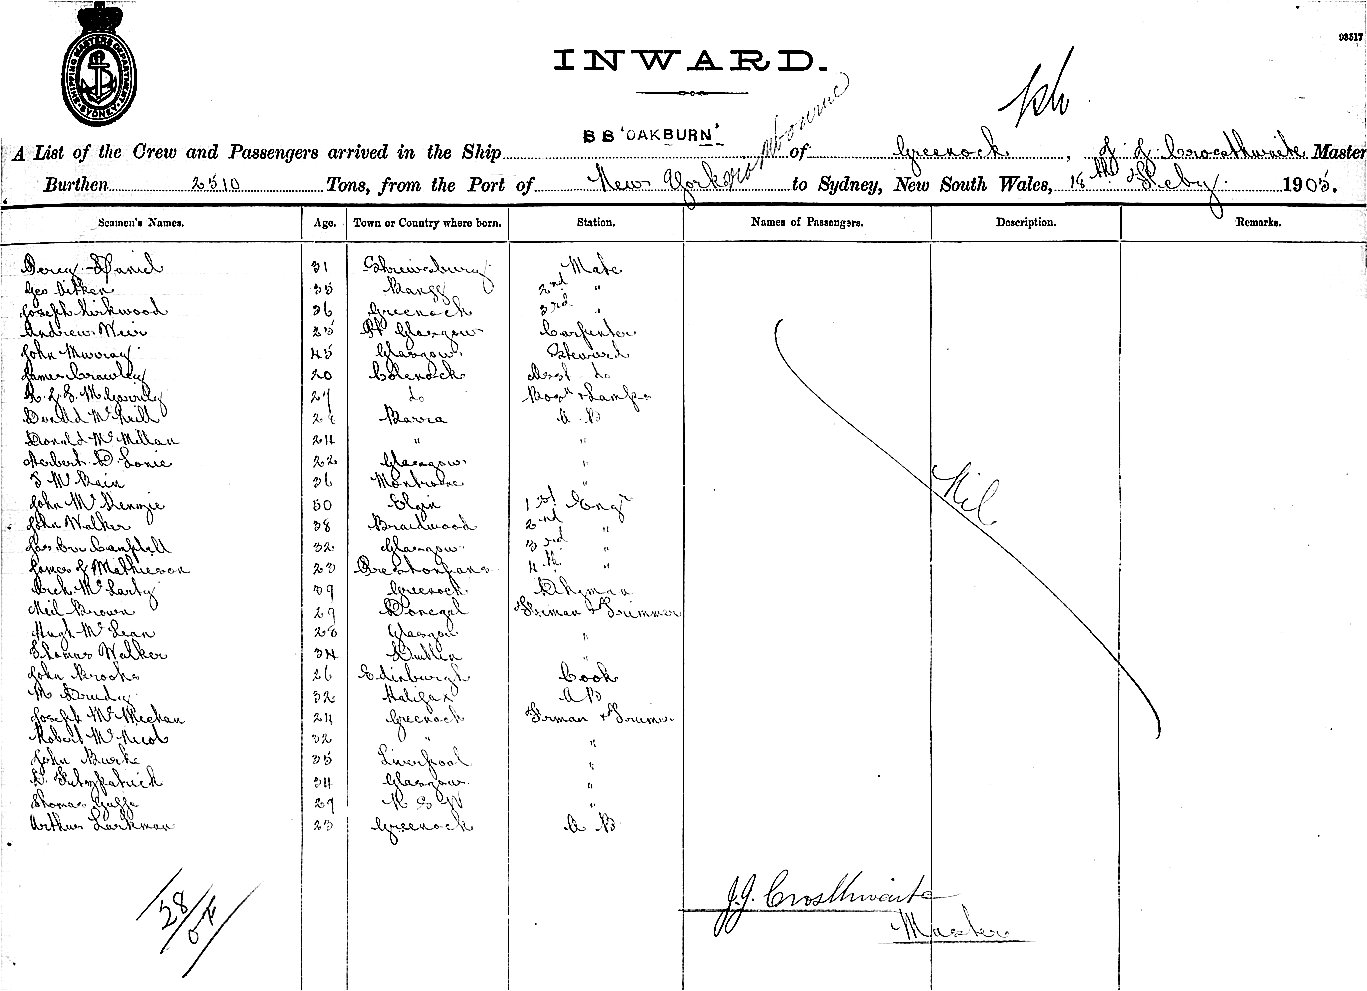 93517
SHIPPING MASTERS DEPARTMENT SYDNEY
INWARD.
SS 'OAKBURN'
A List of the Crew and Passengers arrived in the Ship of Greenock, J J Crosthwaite Master
Burthen 2510 Tons, from the Port of New York via Melbourne to Sydney, New South Wales, 18th Feby 1905.
Seamen's Names. Age. Town or Country where born. Station. Names of Passengers. Description. Remarks.
Percy Daniel 31 Shrewsbury Mate
Geo Aitken 35 Banff 2nd "
Joseph Kirkwood 36 Greenock 3rd "
Andrew Weir 25 Pt Glasgow Carpenter
John Murray 45 Glasgow Steward
James Crawley 20 Greenock Asst Do
27 Do Bosn & Lamps
Donald McNeill 28 Barra A B
Donald McMillan 24 " "
Herbert D Lonie 22 Glasgow "
McBain 36 Montrose "
John McKenzie 50 Elgin 1st Engr
John Walker 38 Braidwood 2nd "
Jas Orr Campbell 32 Glasgow 3rd "
James J Mathieson 23 Prestonpans 4th "
Arch McLarty 39 Greenock Dkyman
Neil Brown 29 Donegal Fireman & Trimmer
Hugh McLean 28 Glasgow "
Thomas Walker 34 Dublin "
John Brooks 26 Edinburgh Cook
M 32 Halifax A B
Joseph McMeekan 24 Greenock Firman & Trimmer
Robert McNicol 32 " "
John Burke 35 Liverpool "
Fitzpatrick 34 Glasgow "
Thomas 29 N S W "
Arthur Larkman 23 Greenock A B
Nil
28
J.J. Crosthwaite
Master